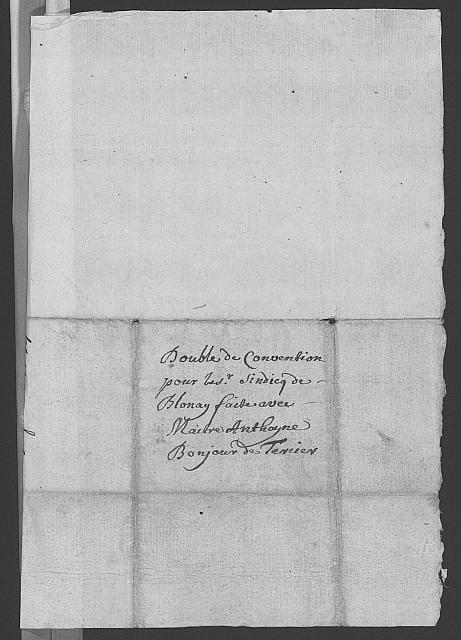 Double de Convention
pour les.r Sindicq de
Blonay faite avec
Maitre Anthoyne
Bonjour de Tercier